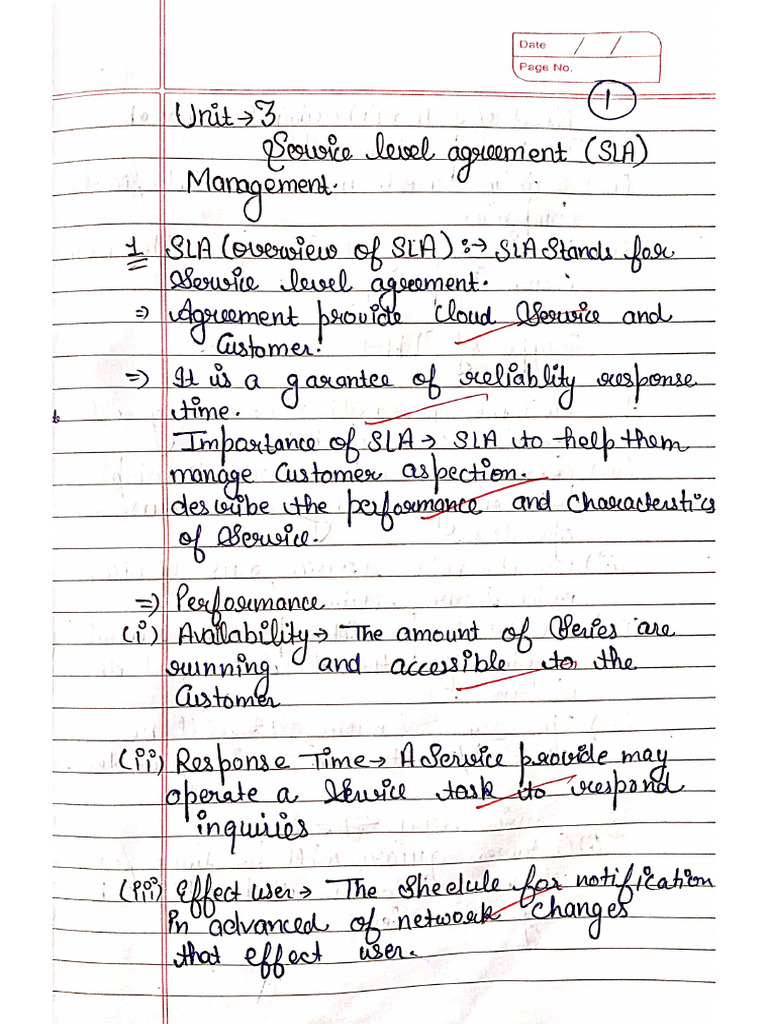 Date / /
Page No.
1
Unit → 3
Service level agreement (SLA)
Management.
1 SLA (overview of SLA) :→ SLA Stands for
Service level agreement.
⇒ Agreement provide cloud Service and
Customer.
⇒ It is a garantee of reliablity response
time.
Importance of SLA → SLA to help them
manage Customer aspection.
describe the performance and characterstics
of Service.
⇒ Performance
(i) Availability → The amount of Series are
running and accessible to the
Customer
(ii) Response Time → A Service provide may
operate a Service task to respond
inquiries
(iii) Effect user → The Shedule for notification
in advanced of network changes
that effect user.